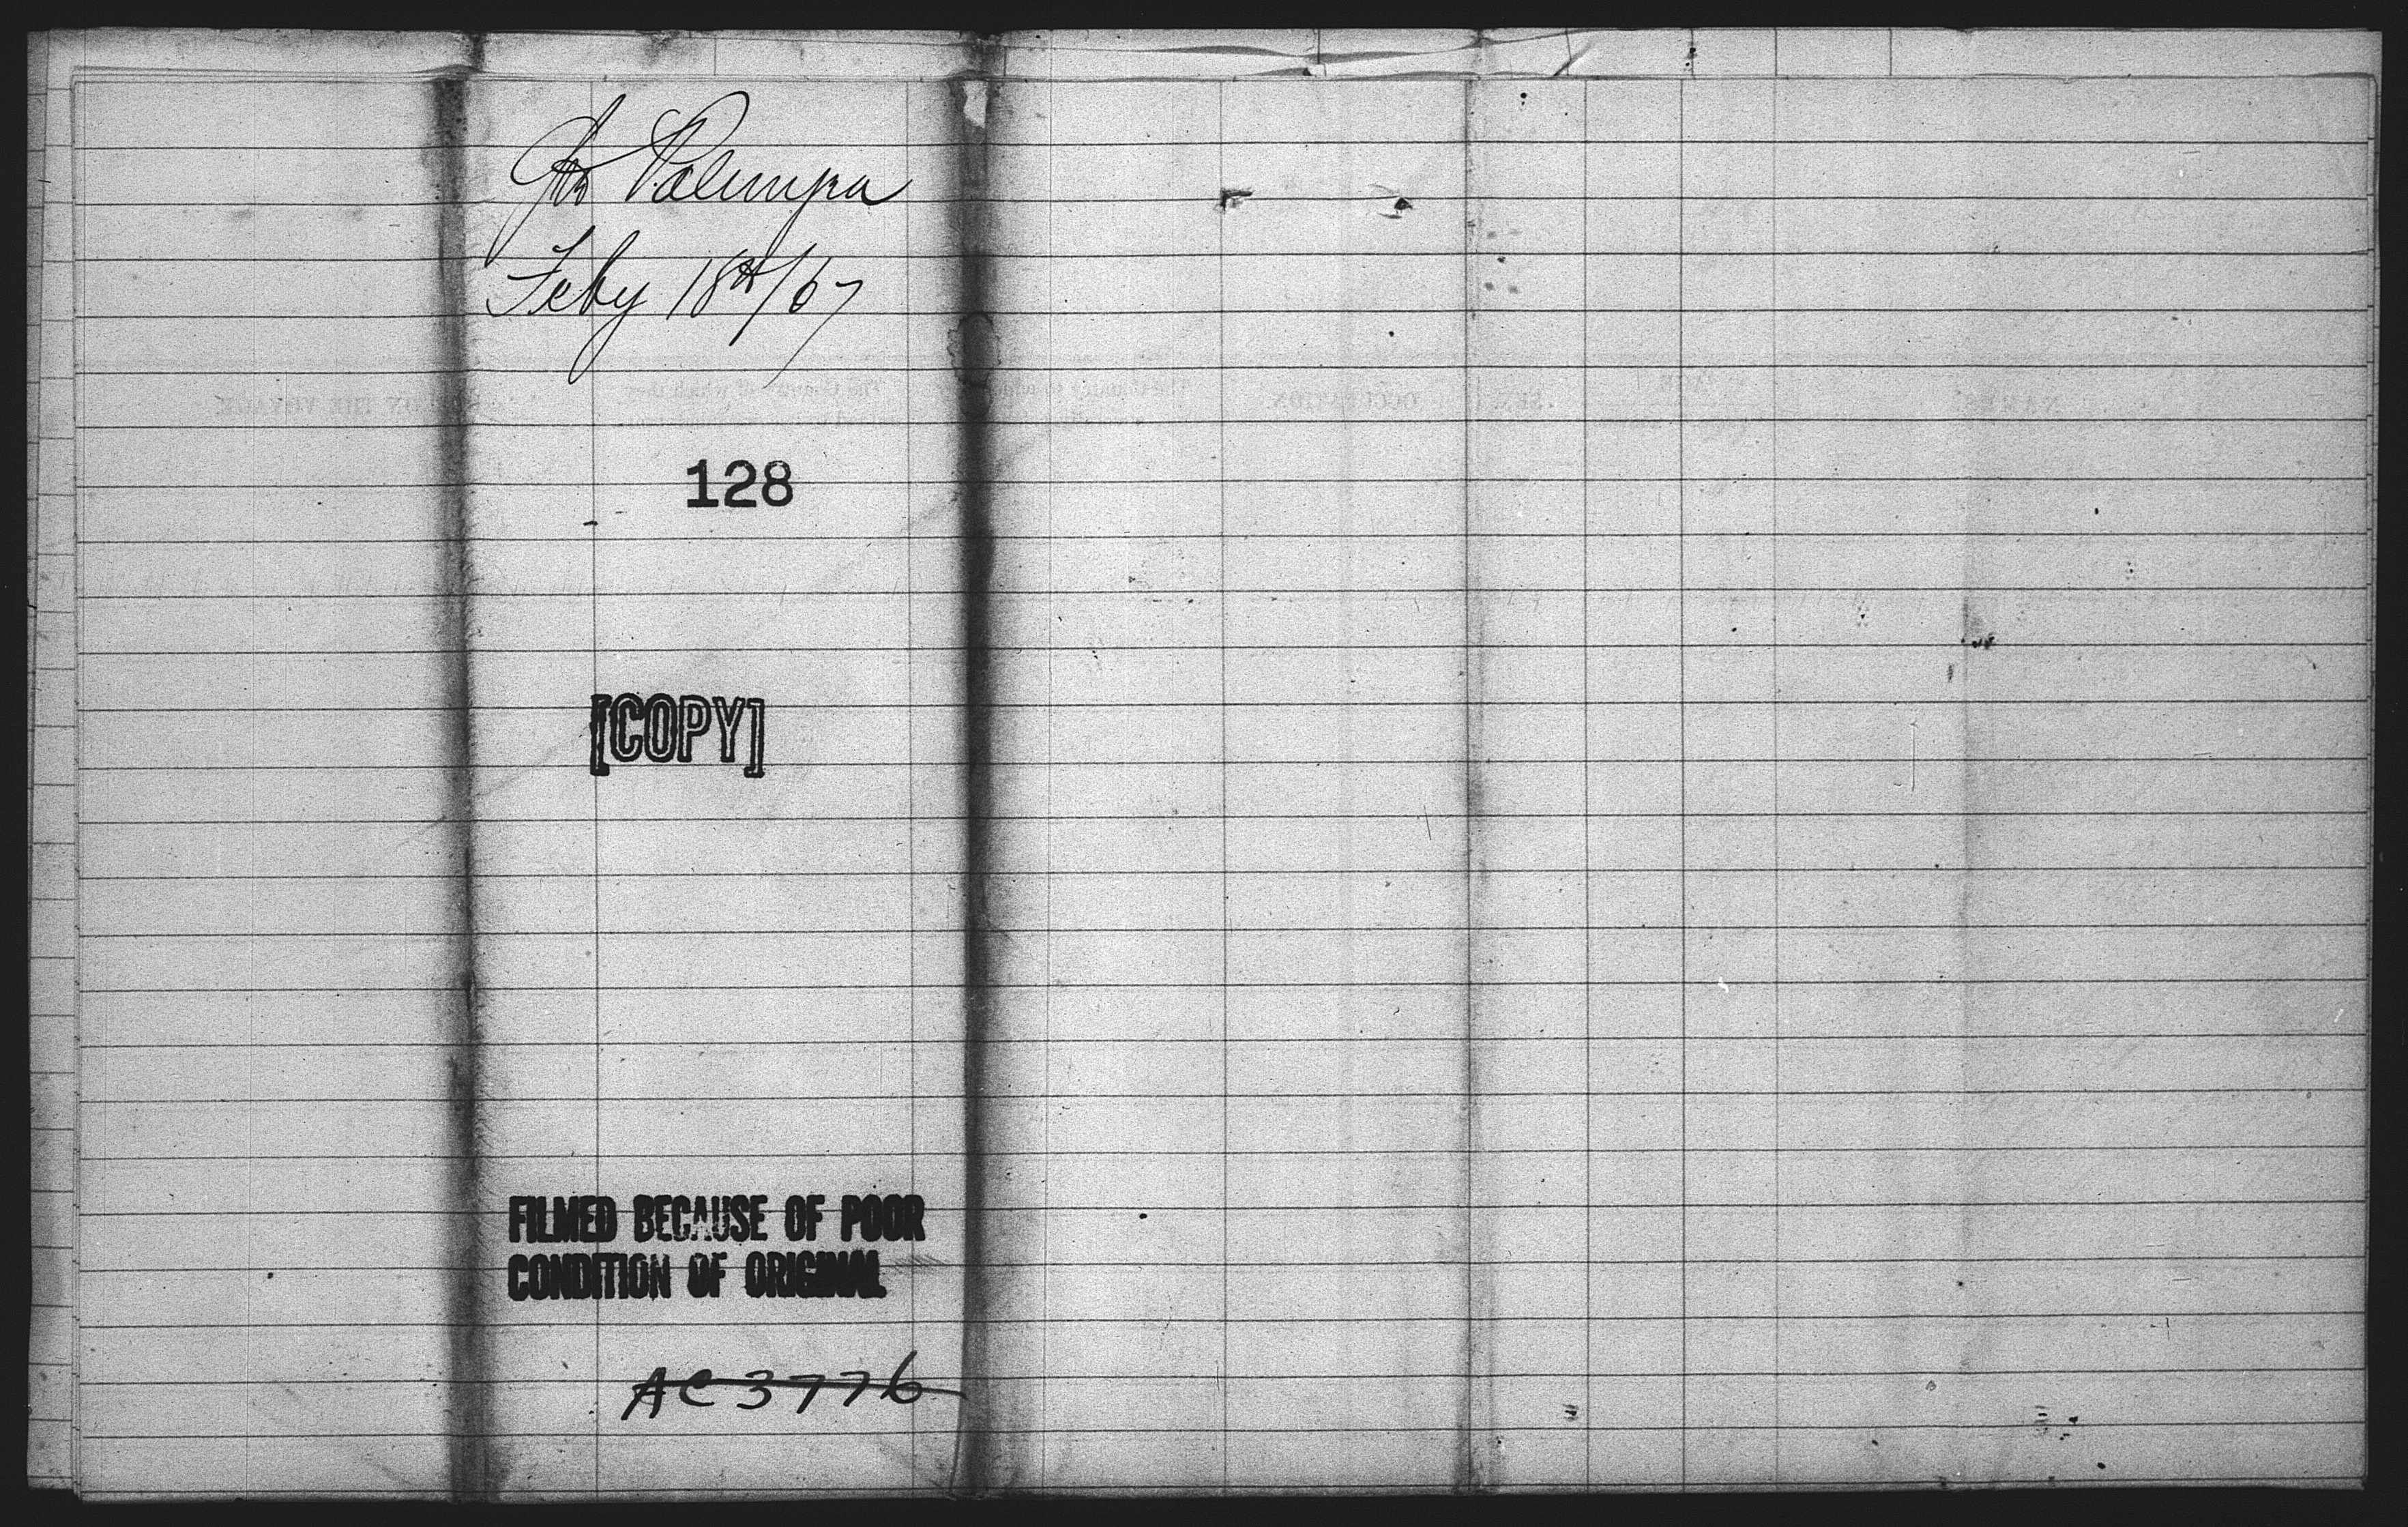 Str Palmyra
Feby 18th/67
128
[COPY]
FILMED BECAUSE OF POOR
CONDITION OF ORIGINAL
AC 3776